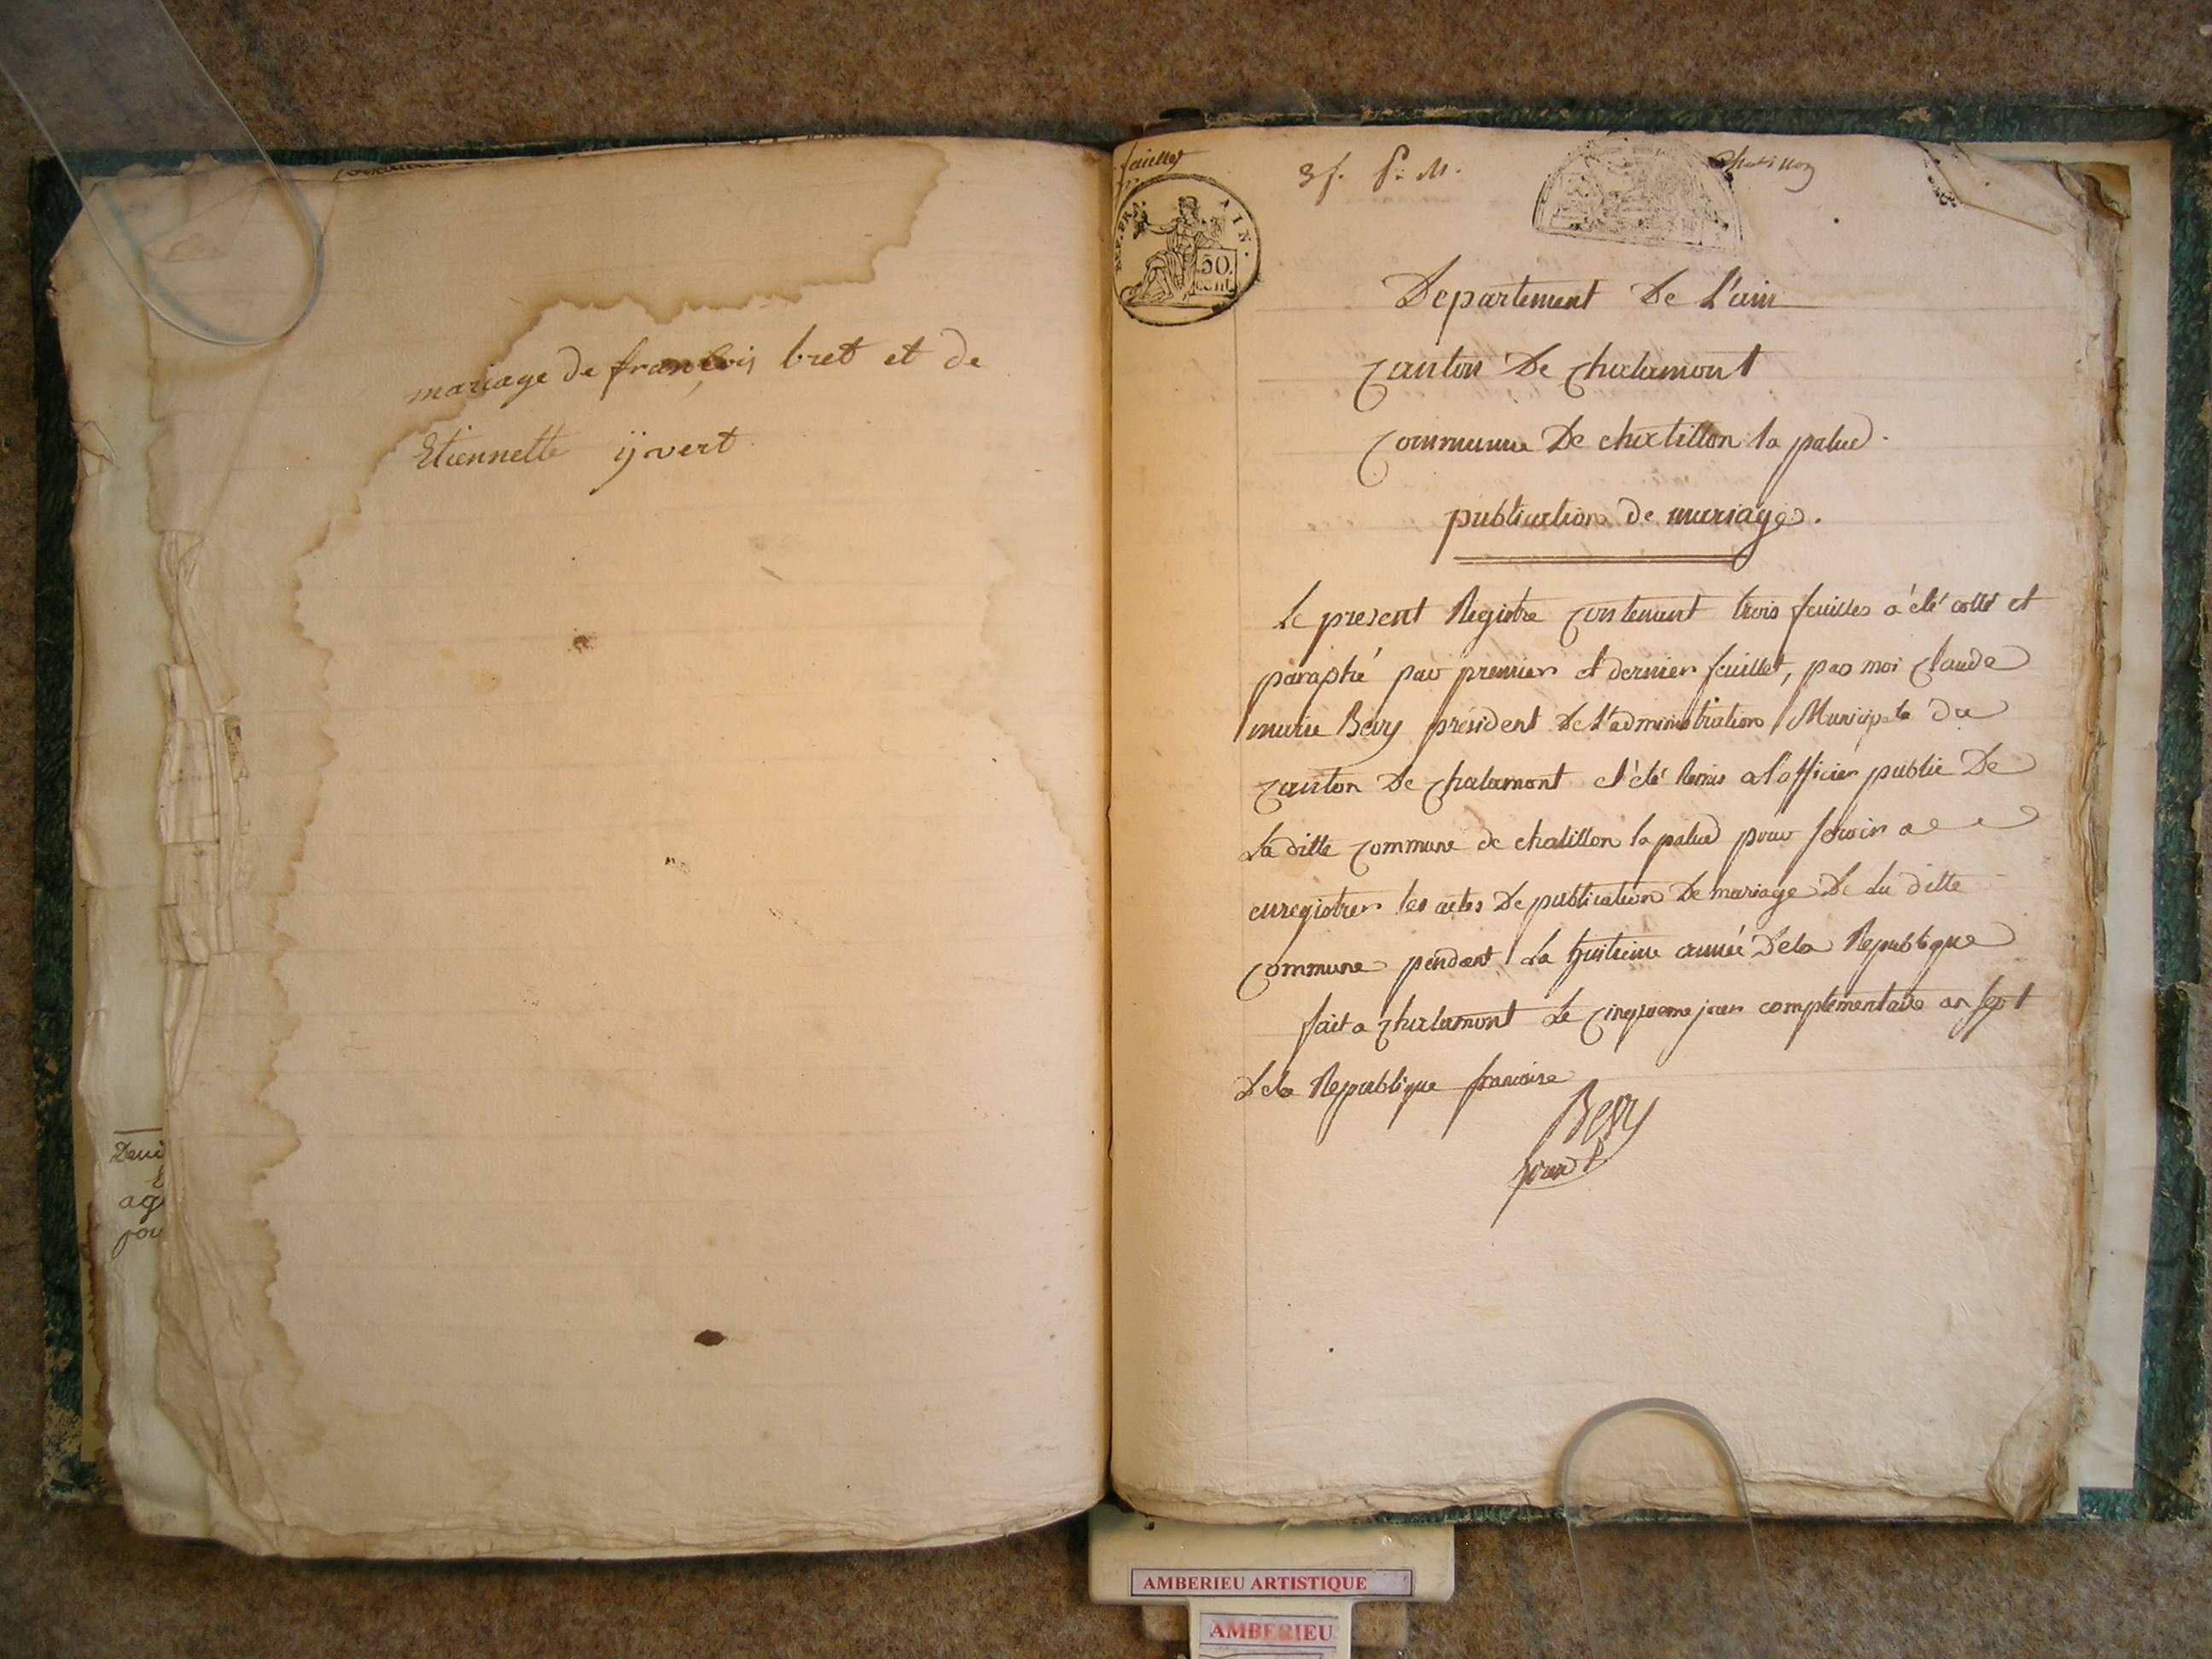 mariage de francois bret et de
Etiennette ijvert
Deux
ag
pou
feuillet
3 f. P. M.
Chatillon
REP. FRA. AIN.
50.
cent
Departement De L'ain
Canton De chalamont
Commune De chatillon la palud.
publication de mariage.
Le present Registre contenant trois feuilles a été cotté et
paraphé par premier et dernier feuillet, par moi Claude
marie Bevy président De l'administration Municipale du
canton De chalamont et été Remis a l'officier public De
La ditte commune de chatillon la palud pour servir a
enregistrer les actes De publication De mariage De La ditte
Commune pendant La huitieme année Dela Republique
fait a chalamont Le Cinquieme jour complementaire an sept
Dela Republique francaise
Bevy
AMBERIEU ARTISTIQUE
AMBERIEU